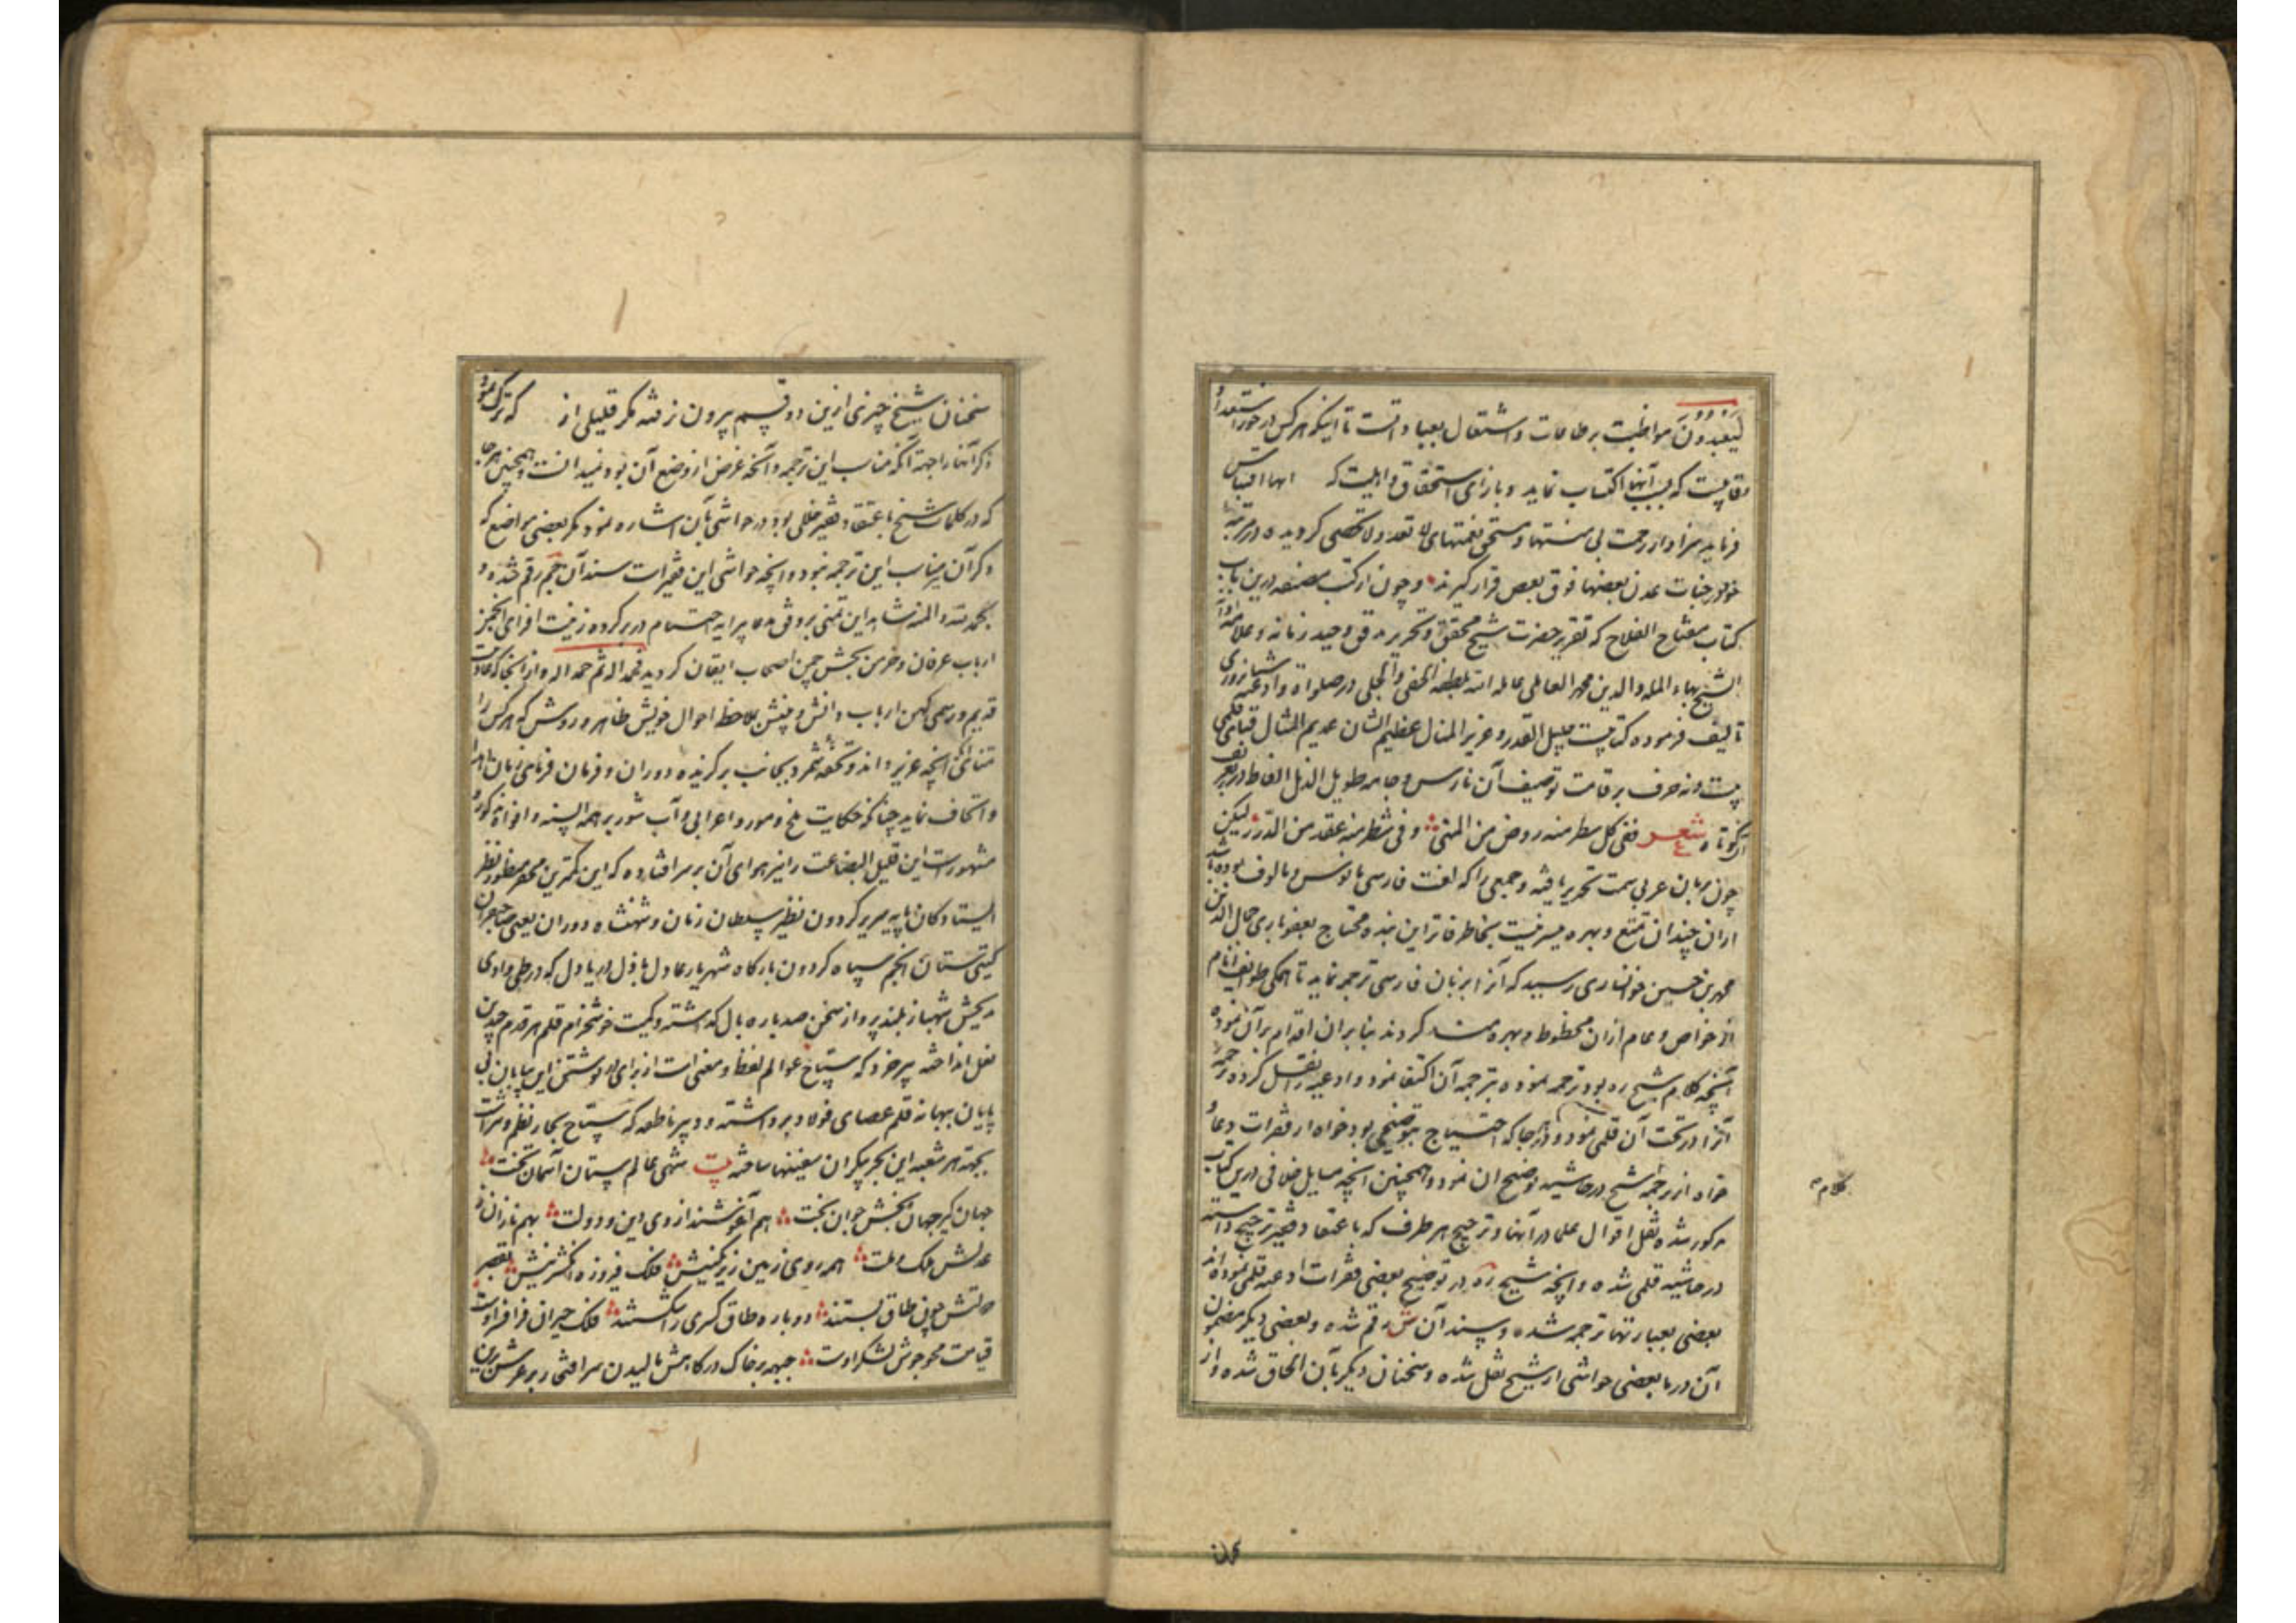 لیعبدون مواظبت بر طاعات و اشتغال بعباداتست تا اینکه هر کس در خور استعداد و
قابلیت که بسبب آنها اکتساب نماید و بازای استحقاق و اهلیت که اقتباس
فرماید سزاوار رحمت بی منتها و مستحق نعمتهای لا تعد و لا تحصی کردیده در مرتبه
خود در جنات عدن بعضها فوق بعض قرار کیرند و چون از کتب مصنفه درین باب
کتاب مفتاح الفلاح که تقریر حضرت شیخ محقق و تحریر مدقق وحید زمانه و علامه
الشیخ بهاء المله و الدین محمد العاملی عامله الله بلطفه الخفی و الجلی در صلواة و ادعیه شبانروزی
تالیف فرموده کتابیست جلیل القدر و عزیز المنال عظیم الشان عدیم المثال قبای قلمی
نیست و نه حرف بر قامت توصیف آن نارس و جامه طویل الذیل الفاظ در بر تعریف
آن کوتاه شعر ففی کل سطر منه روض من المنی و فی شطر منه عقد من الدرر لیکن
چون بزبان عربی سمت تحریر یافته و جمعی را که لغت فارسی مانوس و مالوف بوده باشد
ازان چندان تمتع و بهره میسر نیست بخاطر فاتر این بنده محتاج بعفو باری جمال الدین
محمد بن حسین خوانساری رسید که آنرا بزبان فارسی ترجمه نماید تا همکی طوایف انام
از خواص و عوام ازان محظوظ و بهره مند کردند بنابران اقدام بر آن نموده
آنچه کلام شیخ ره بود ترجمه نموده بترجمه آن اکتفا نمود و ادعیه را نقل کرده ترجمه
آنرا در تحت آن قلمی نمود و هر جا که احتیاج بتوضیحی بود خواه از فقرات دعا و
خواه از ترجمه شیخ در حاشیه توضیح آن نمود و همچنین آنچه مسایل خلافی درین کتاب
مذکور شده نقل اقوال علما در آنها و ترجیح هر طرف که باعتقاد فقیر ترجیح داشته
در حاشیه قلمی شده و آنچه شیخ ره در توضیح بعضی فقرات ادعیه قلمی نموده اند
بعضی بعبارتها ترجمه شده و سند آن ش رقم شده و بعضی دیکر مضمون
آن در ما بعضی حواشی از شیخ نقل شده و سخنان دیکر بآن الحاق شده و از
کلام
سخنان
سخنان شیخ چیزی ازین دو قسم بیرون نرفته مکر قلیلی از که ترک نمود
ذکر آنها را جهة آنکه مناسب این ترجمه و آنچه غرض از وضع آن بود نمیدانست و همچنین هر جا
که در کلمات شیخ باعتقاد فقیر خللی بود در حواشی بآن اشاره نمود مکر بعضی مواضع که
ذکر آن نیز مناسب این ترجمه نبود و آنچه حواشی این فقیر است سند آن جم رقم شده و
بحمد الله و المنه شاهد این تمنی بر وفق مدعا پیرایه اختتام در بر کرده زینت افزای انجمن
ارباب عرفان و خرمن بخش چمن اصحاب ایقان کردید فحمدا له ثم حمدا له و از آنجا که عادت
قدیم و رسمی کهن ارباب دانش و بینش بملاحظه احوال خویش ظاهر و روشن که هر کس را
متاعی آنچه عزیز داند و تحفه شمرد بجانب برکزیده دوران و فرمان فرمای زمان اهدا
و اتحاف نماید چنانکه حکایت ملخ و مور و اعرابی و آب شور بر همه السنه و افواه مذکور و
مشهورست این قلیل البضاعت را نیز هوای آن بر سر افتاده که این کمترین محقر منظور نظر
ایستادکان پایه سریر کردون نظیر سلطان زمان و شهنشاه دوران یعنی صاحبقران
کیتی ستان انجم سپاه کردون بارکاه شهریار عادل باذل دریادل که در طی وادی
مدیحش شهباز بلند پرواز سخن صد باره بال کذاشته و کمیت خوشخرام قلم هر قدم چندین
نعل انداخته پیر خرد که سیاح عوالم لفظ و معنی است از برای در نوشتن این بیابان بی
پایان بهبانه قلم عصای فولاد برداشته و دبیر ناطقه که سباح بحار نظم و نثر است
بجهة هر شعبه این بحر بیکران سفینها ساخته بیت شهی عالم ستان آسمان تخت
جهان کیر جهان بخش جوان بخت هم آغوشند از وی دین و دولت بهم نازان ز
عدلش ملک و ملت همه روی زمین زیر نکینش فلک فیروزه انکشترینش بقصر
دولتش چون طاق بستند دوباره طاق کسری را شکستند فلک حیران فر افسر اوست
قیامت محو جوش لشکر اوست جبهه بر خاک درکاهش مالیدن سر افتخار بر عرش برین